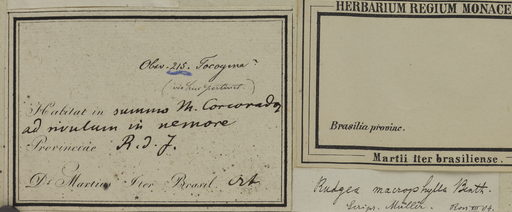 Obs. 215. Tocogina?
(vix huc pertinet.)
Habitat in summo M. Corcovado,
ad rivulum in nemore
Provinciae R. d. J.
Dr. Martius Iter Brasil. Oct.
HERBARIUM REGIUM MONACE
Brasilia provinc.
Martii Iter brasiliense.
Rudgea macrophylla Benth.
Scrips. Müller.